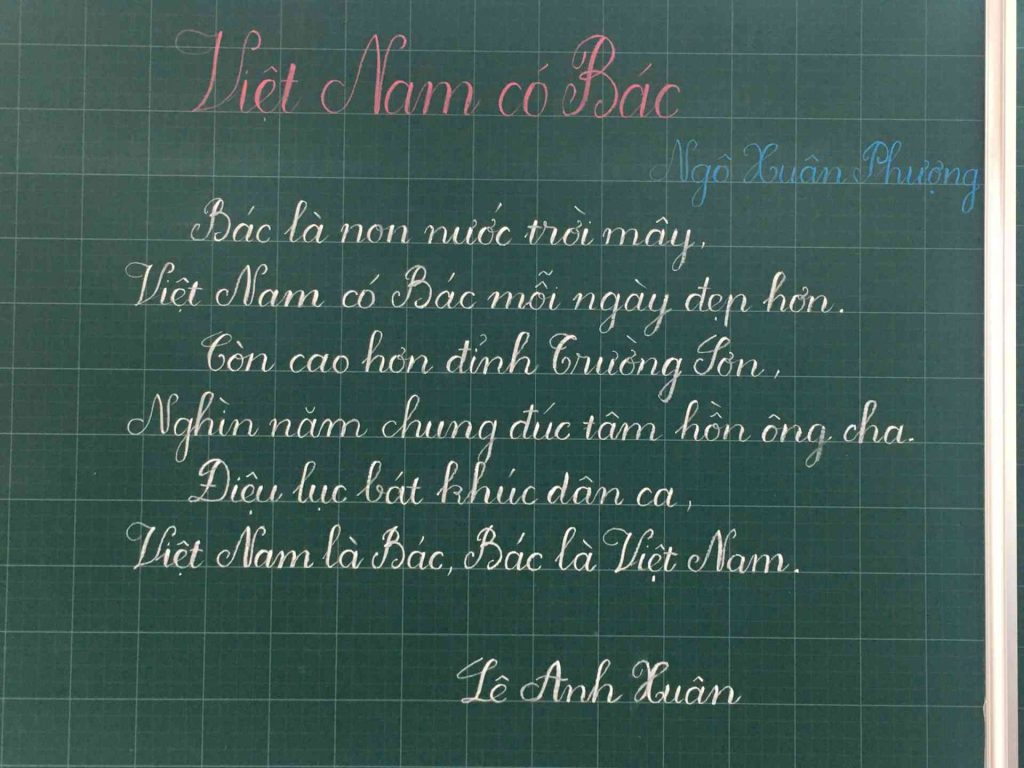 Việt Nam có Bác
Ngô Xuân Phượng
Bác là non nước trời mây,
Việt Nam có Bác mỗi ngày đẹp hơn.
Còn cao hơn đỉnh Trường Sơn,
Nghìn năm chung đúc tâm hồn ông cha.
Điệu lục bát khúc dân ca,
Việt Nam là Bác, Bác là Việt Nam.
Lê Anh Xuân